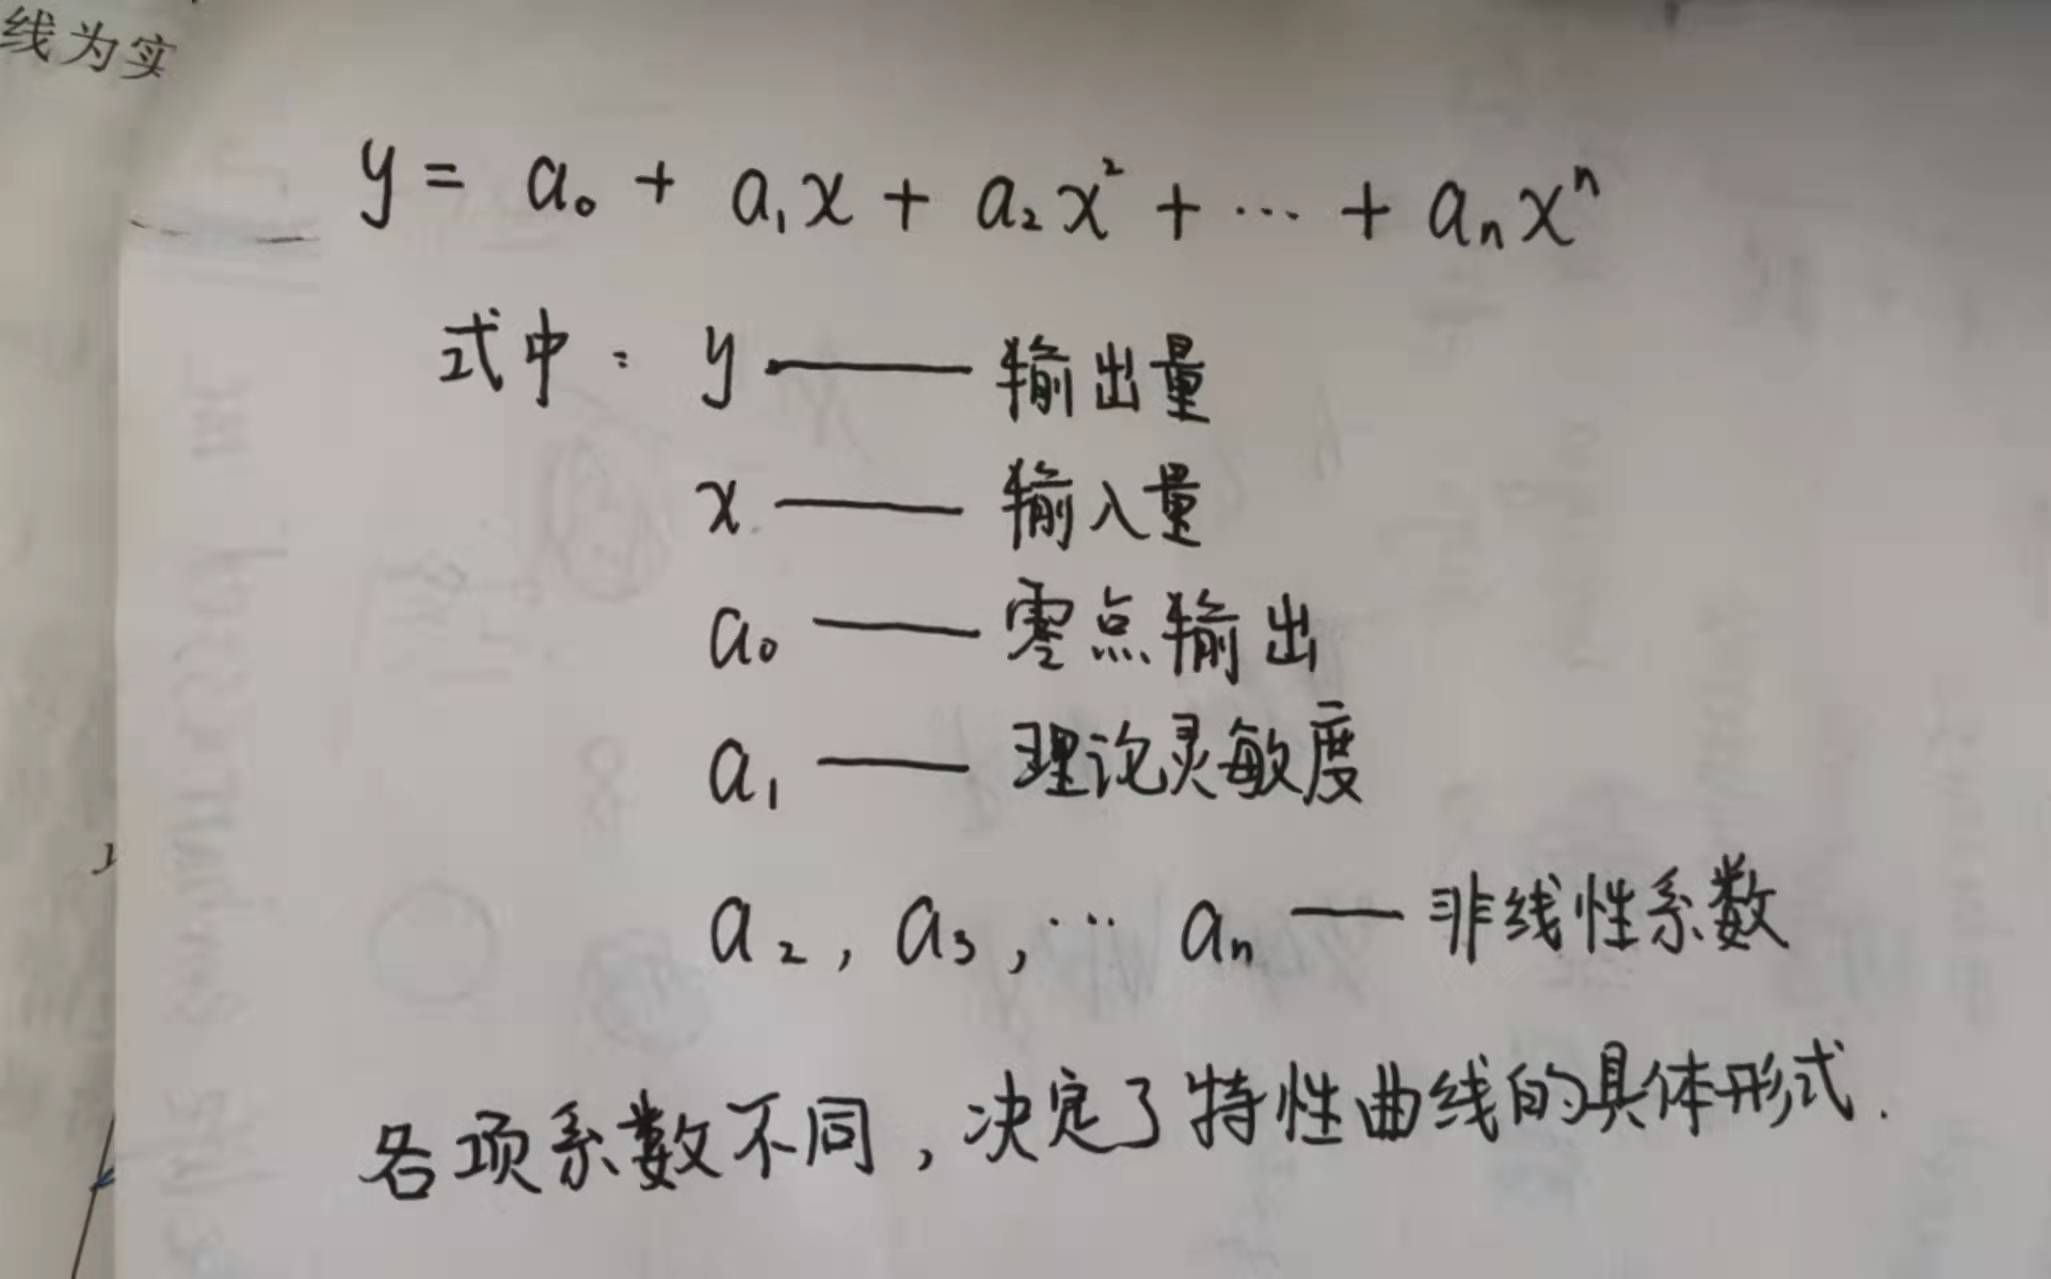 线为实
y = a₀ + a₁x + a₂x² + ··· + aₙxⁿ
式中： y —— 输出量
x —— 输入量
a₀ —— 零点输出
a₁ —— 理论灵敏度
a₂, a₃, ··· aₙ —— 非线性系数
各项系数不同，决定了特性曲线的具体形式.